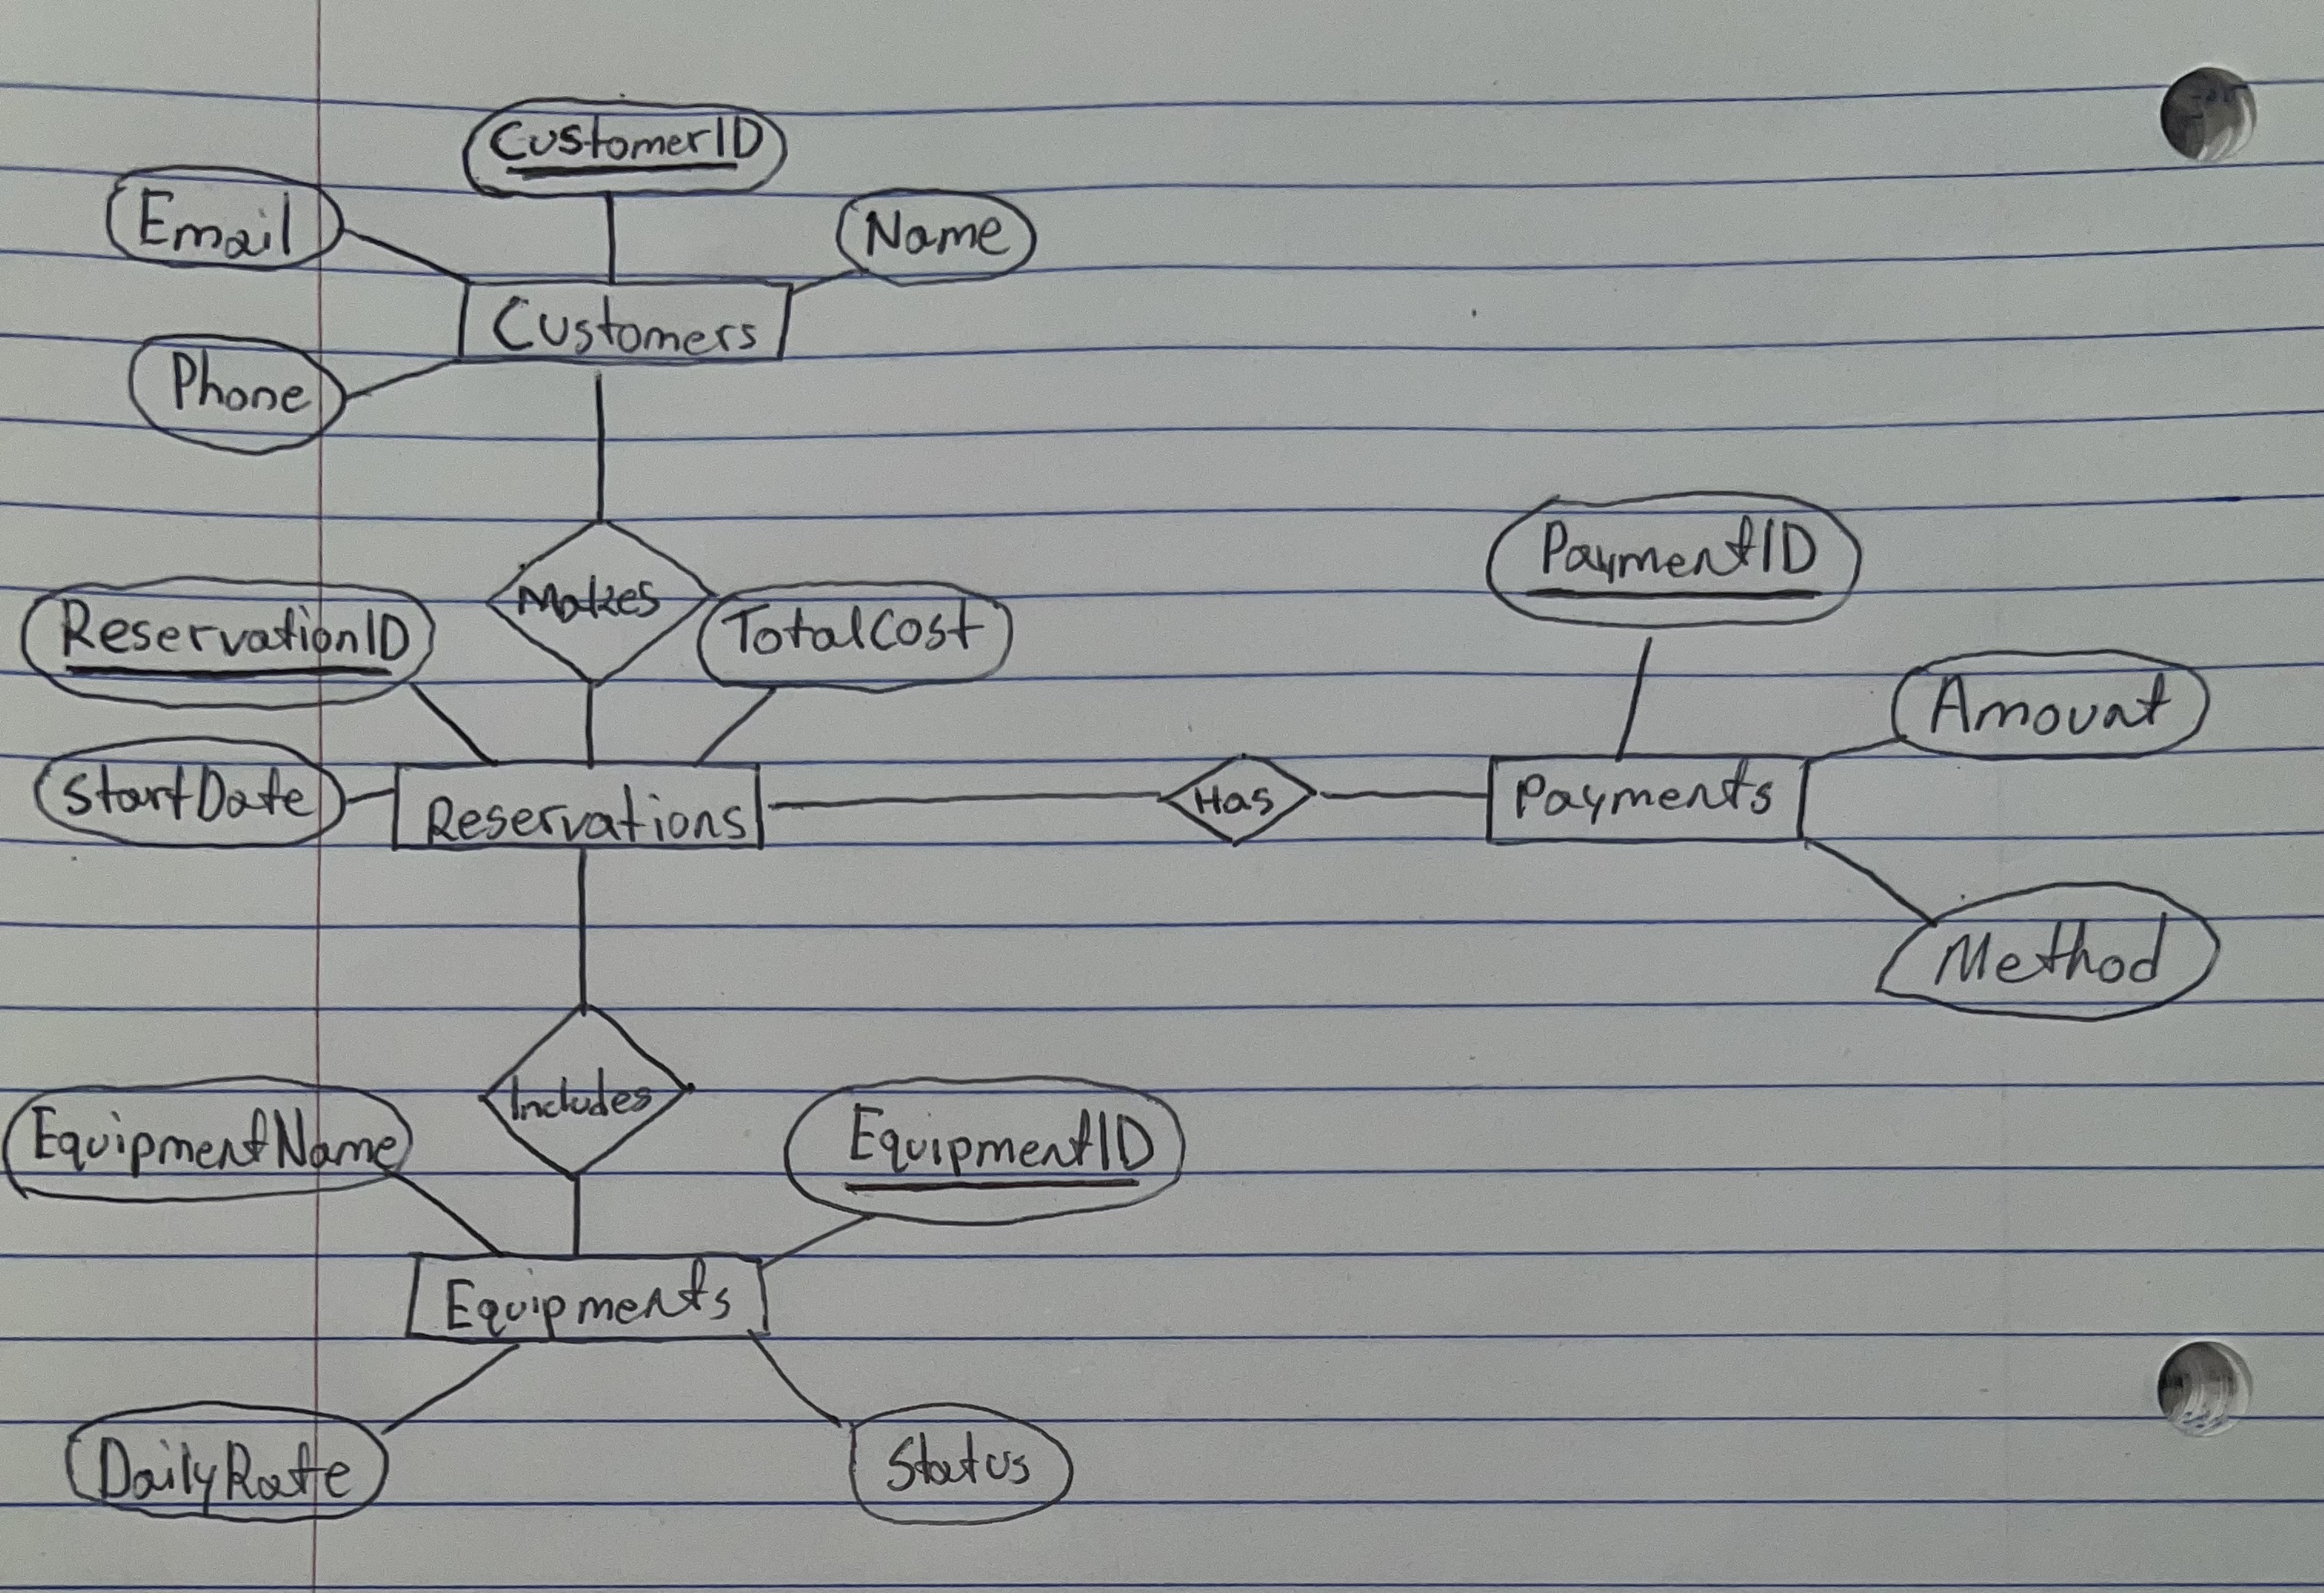 CustomerID
Email
Name
Customers
Phone
Makes
ReservationID
TotalCost
PaymentID
Amount
StartDate
Reservations
Has
Payments
Method
Includes
EquipmentName
EquipmentID
Equipments
DailyRate
Status